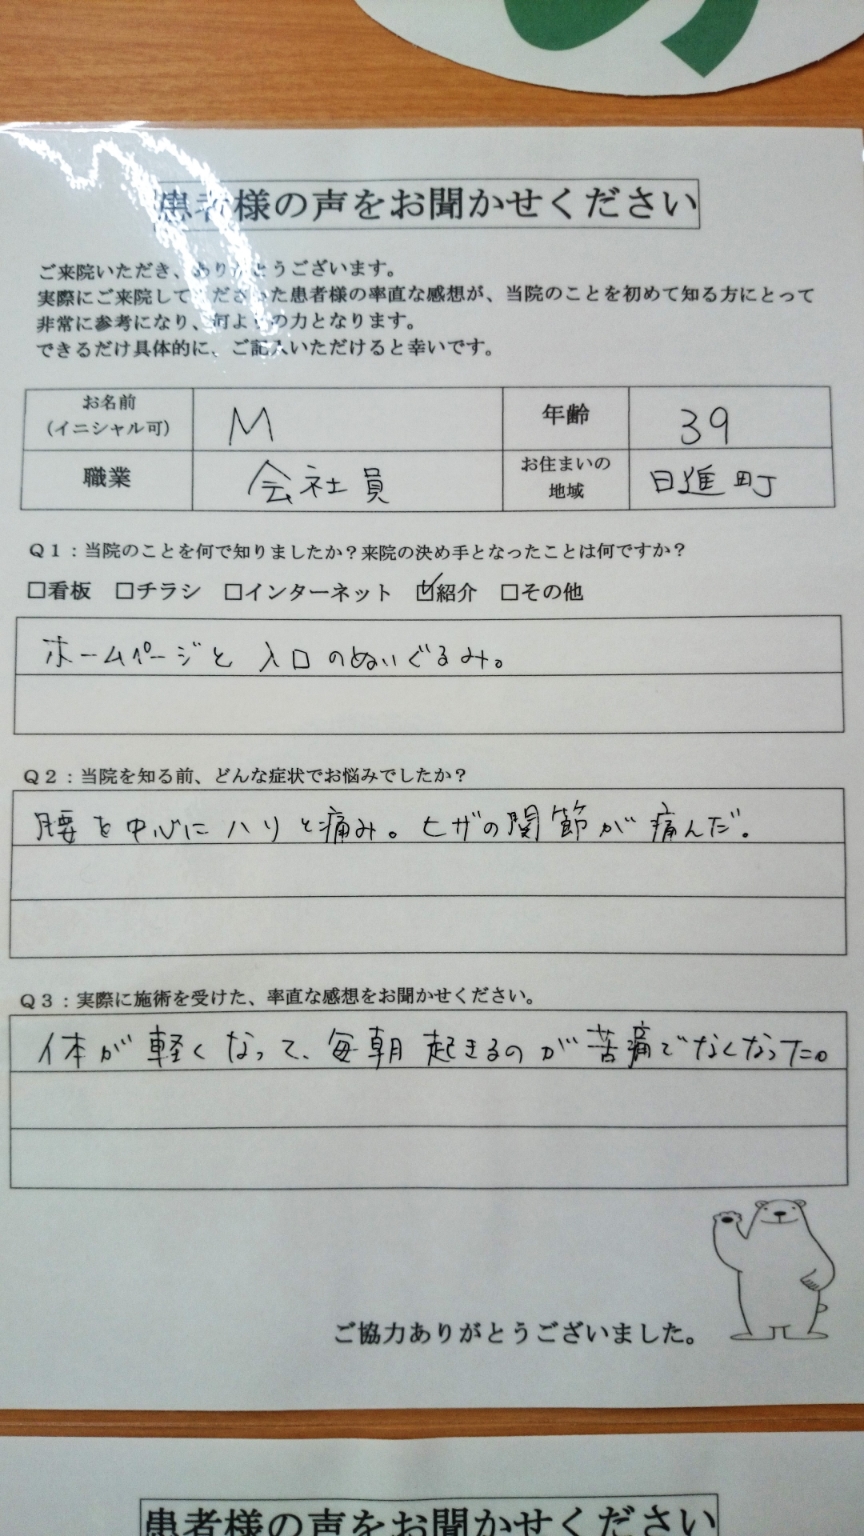 の
患者様の声をお聞かせください
ご来院いただき、ありがとうございます。
実際にご来院してくださった患者様の率直な感想が、当院のことを初めて知る方にとって
非常に参考になり、何よりの力となります。
できるだけ具体的に、ご記入いただけると幸いです。
お名前
(イニシャル可)
M
年齢
39
職業
会社員
お住まいの
地域
日進町
Q1：当院のことを何で知りましたか？来院の決め手となったことは何ですか？
□看板 □チラシ □インターネット ☑紹介 □その他
ホームページと入口のぬいぐるみ。
Q2：当院を知る前、どんな症状でお悩みでしたか？
腰を中心にハリと痛み。ヒザの関節が痛んだ。
Q3：実際に施術を受けた、率直な感想をお聞かせください。
体が軽くなって、毎朝起きるのが苦痛でなくなった。
ご協力ありがとうございました。
患者様の声をお聞かせください